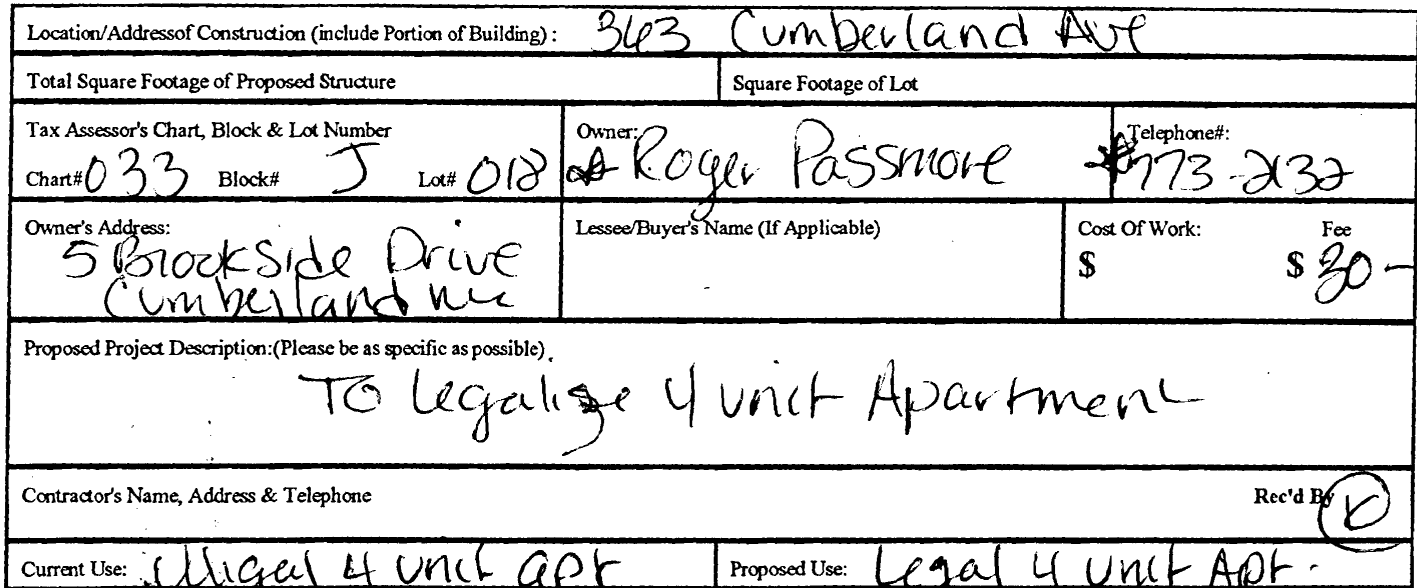 Location/Addressof Construction (include Portion of Building): 343 Cumberland Ave
Total Square Footage of Proposed Structure Square Footage of Lot
Tax Assessor's Chart, Block & Lot Number Owner: Telephone#:
Chart# 033 Block# J Lot# 018 Roger Passmore 773-2132
Owner's Address: Lessee/Buyer's Name (If Applicable) Cost Of Work: Fee
5 Brookside Drive $ $ 30 -
Cumberland
Proposed Project Description:(Please be as specific as possible)
To Legalize 4 unit Apartment
Contractor's Name, Address & Telephone Rec'd By
Current Use: illigal 4 unit apt Proposed Use: Legal 4 unit Apt.